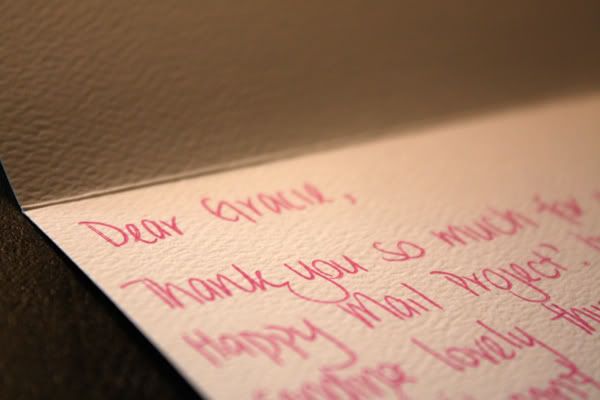 Dear Gracie,
Thank you so much for
Happy Mail Project'.
sending lovely